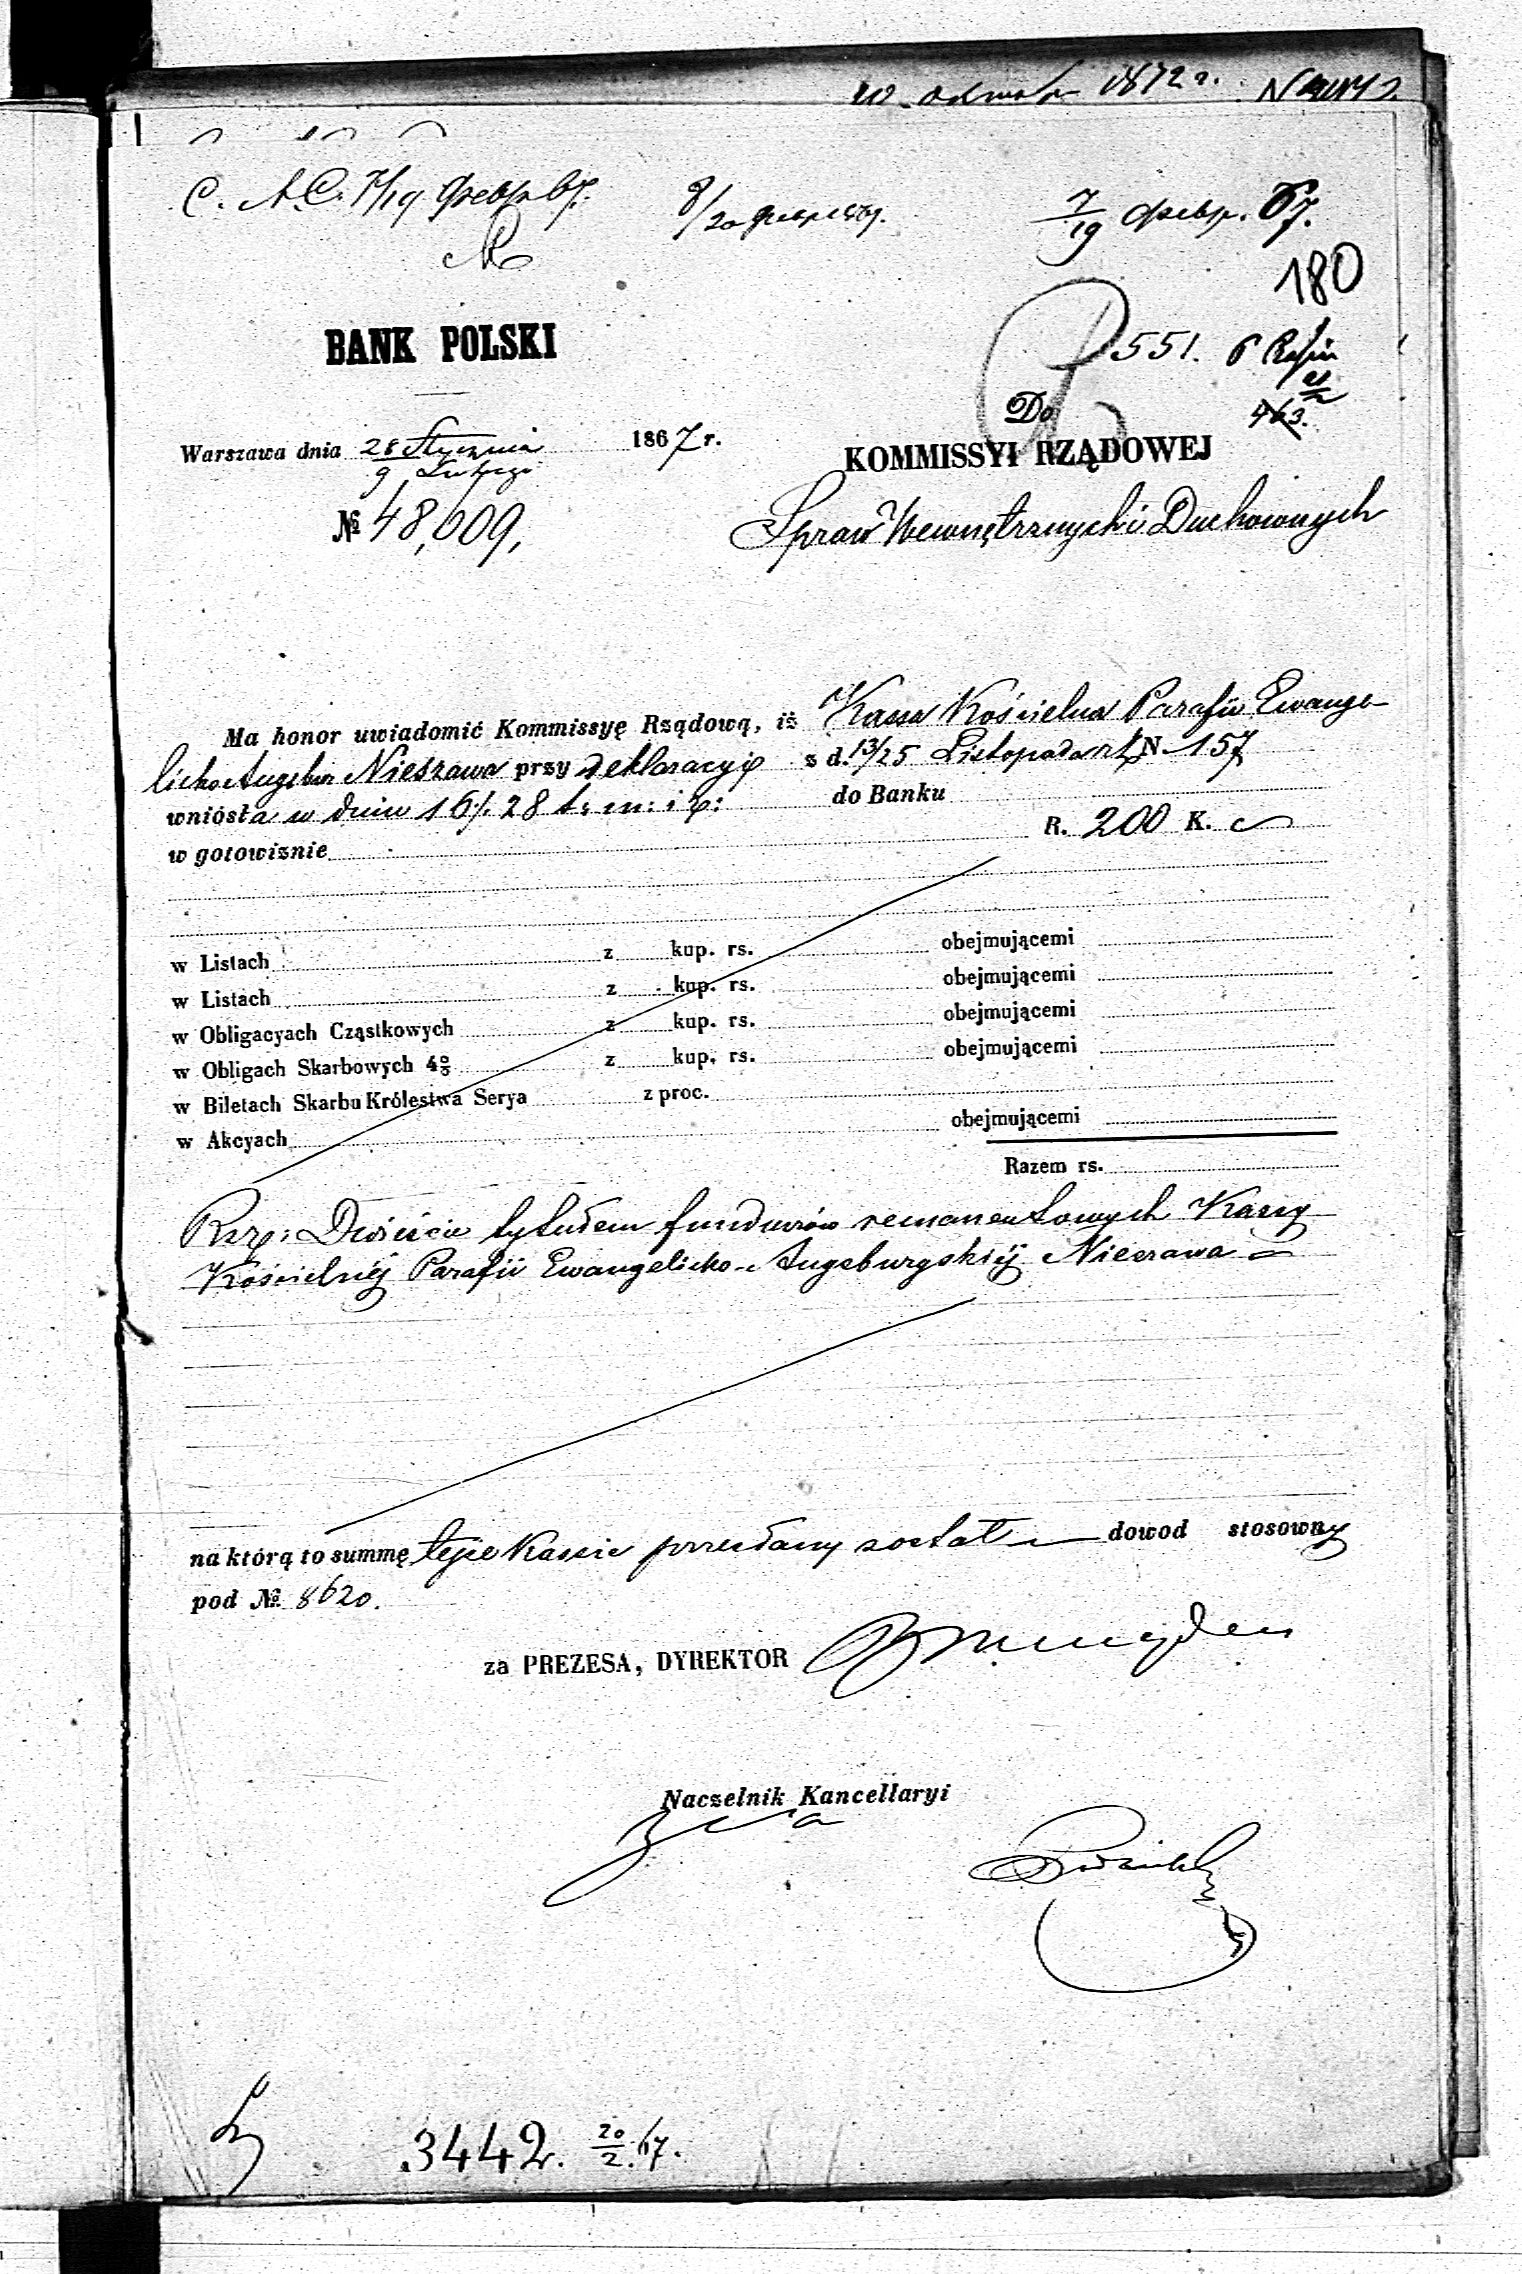 1872 г.
C. A.C. 7/19 Февр 67.
8/20 Февр
7/19 Февр. 67.
180
BANK POLSKI
551.
463.
Do
Warszawa dnia 28 Stycznia 1867 r.
9 Lutego
KOMMISSYI RZĄDOWEJ
№ 48,609,
Spraw Wewnętrznych i Duchownych
Ma honor uwiadomić Kommissyę Rządową, iż Kassa Kościelna Parafii Ewange-
licko Augsbur Nieszawa przy deklaracyi z d. 13/25 Listopada N 157
wniósła w dniu 16/28 t. m: i r: do Banku
w gotowiznie R. 200 K. –
w Listach z kup. rs. obejmującemi
w Listach z kup. rs. obejmującemi
w Obligacyach Cząstkowych z kup. rs. obejmującemi
w Obligach Skarbowych 4% z kup. rs. obejmującemi
w Biletach Skarbu Królestwa Serya z proc.
w Akcyach obejmującemi
Razem rs.
Rsr: Dwieście tytułem funduszów remanentowych Kassy
Kościelnéj Parafii Ewangelicko-Augsburgskiéj Nieszawa
na którą to summę tejże Kassie przesłany został dowod stosowny
pod № 8620.
za PREZESA, DYREKTOR
Naczelnik Kancellaryi
3442. 20/2 67.